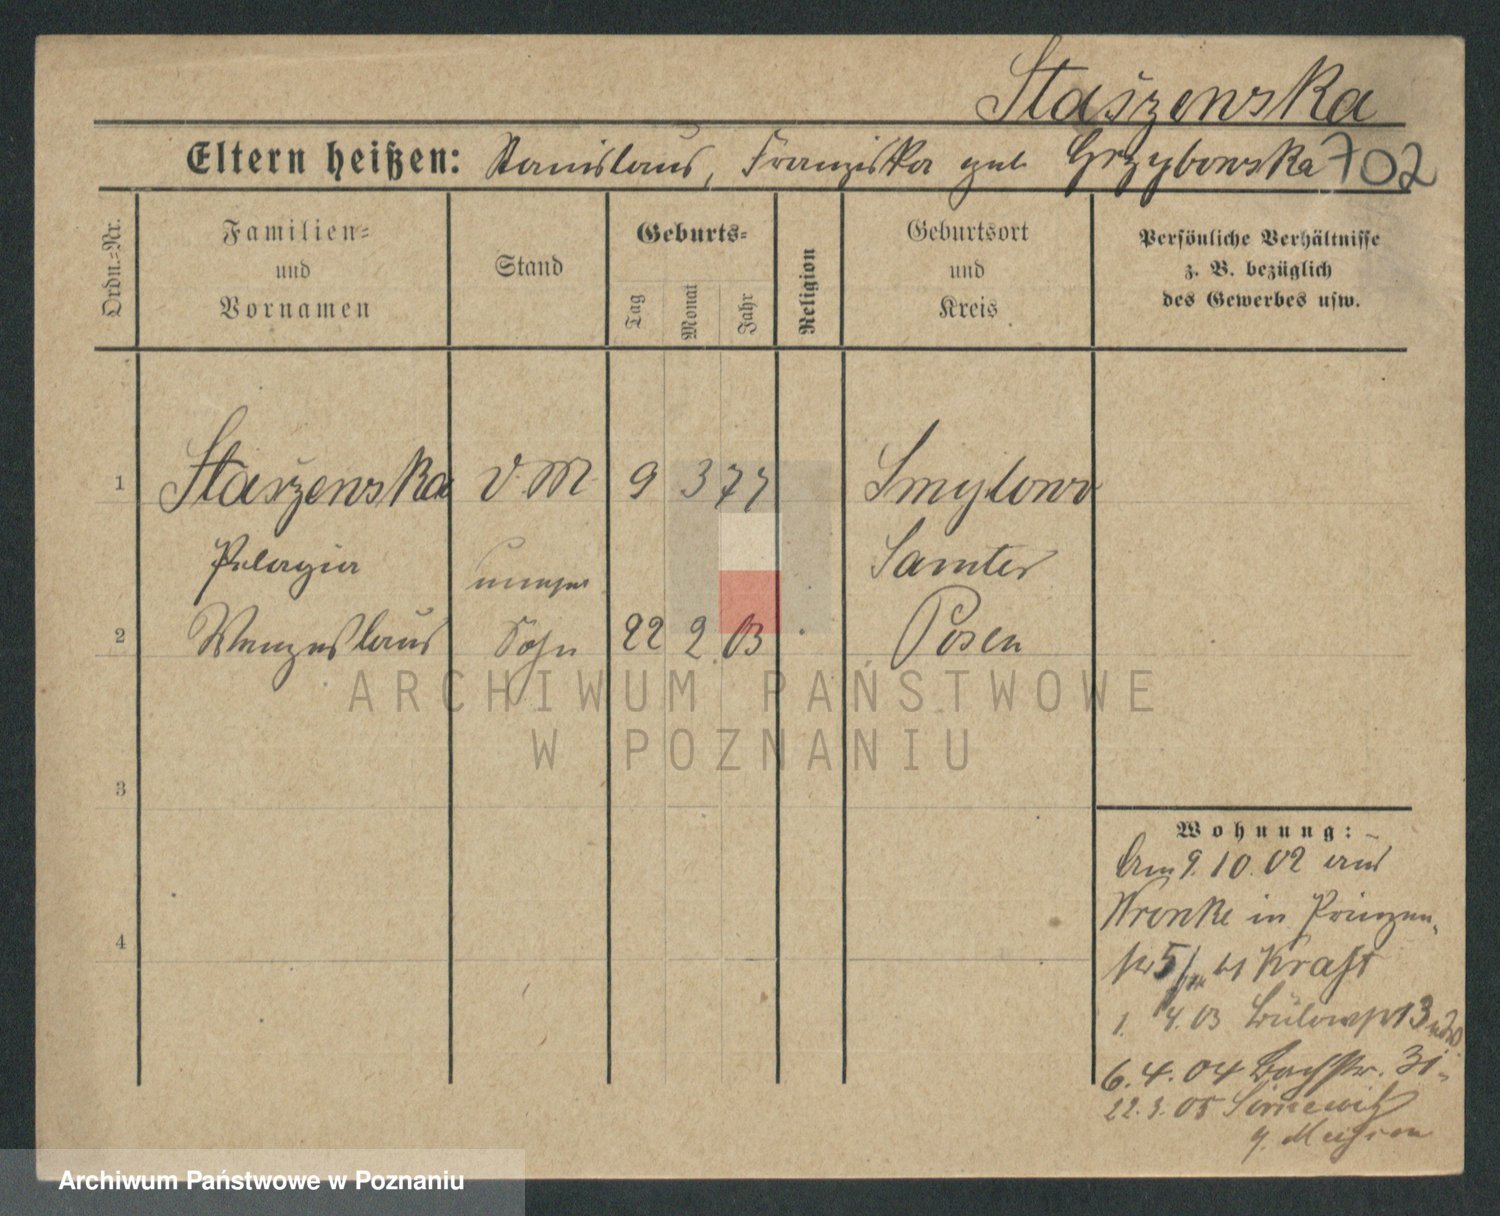 Staszewska
Eltern heißen: Stanislaus, Franziska geb Grzybowska 702
Ordn.-Nr.
Familien-
und
Vornamen
Stand
Geburts-
Tag
Monat
Jahr
Religion
Geburtsort
und
Kreis
Persönliche Verhältnisse
z. B. bezüglich
des Gewerbes usw.
1 Staszewska 9 3 77 Smylowo
Pelagia Samter
2 Wenzeslaus Sohn 22 2 03 Posen
3
4
ARCHIWUM PAŃSTWOWE
W POZNANIU
Wohnung:
Am 9.10.02 aus
Wronke in Prinzen-
str 5/ bei Kraft
1. 4. 03 Bülowstr 13
6. 4. 04 Bachstr. 31
22.3.05
Archiwum Państwowe w Poznaniu